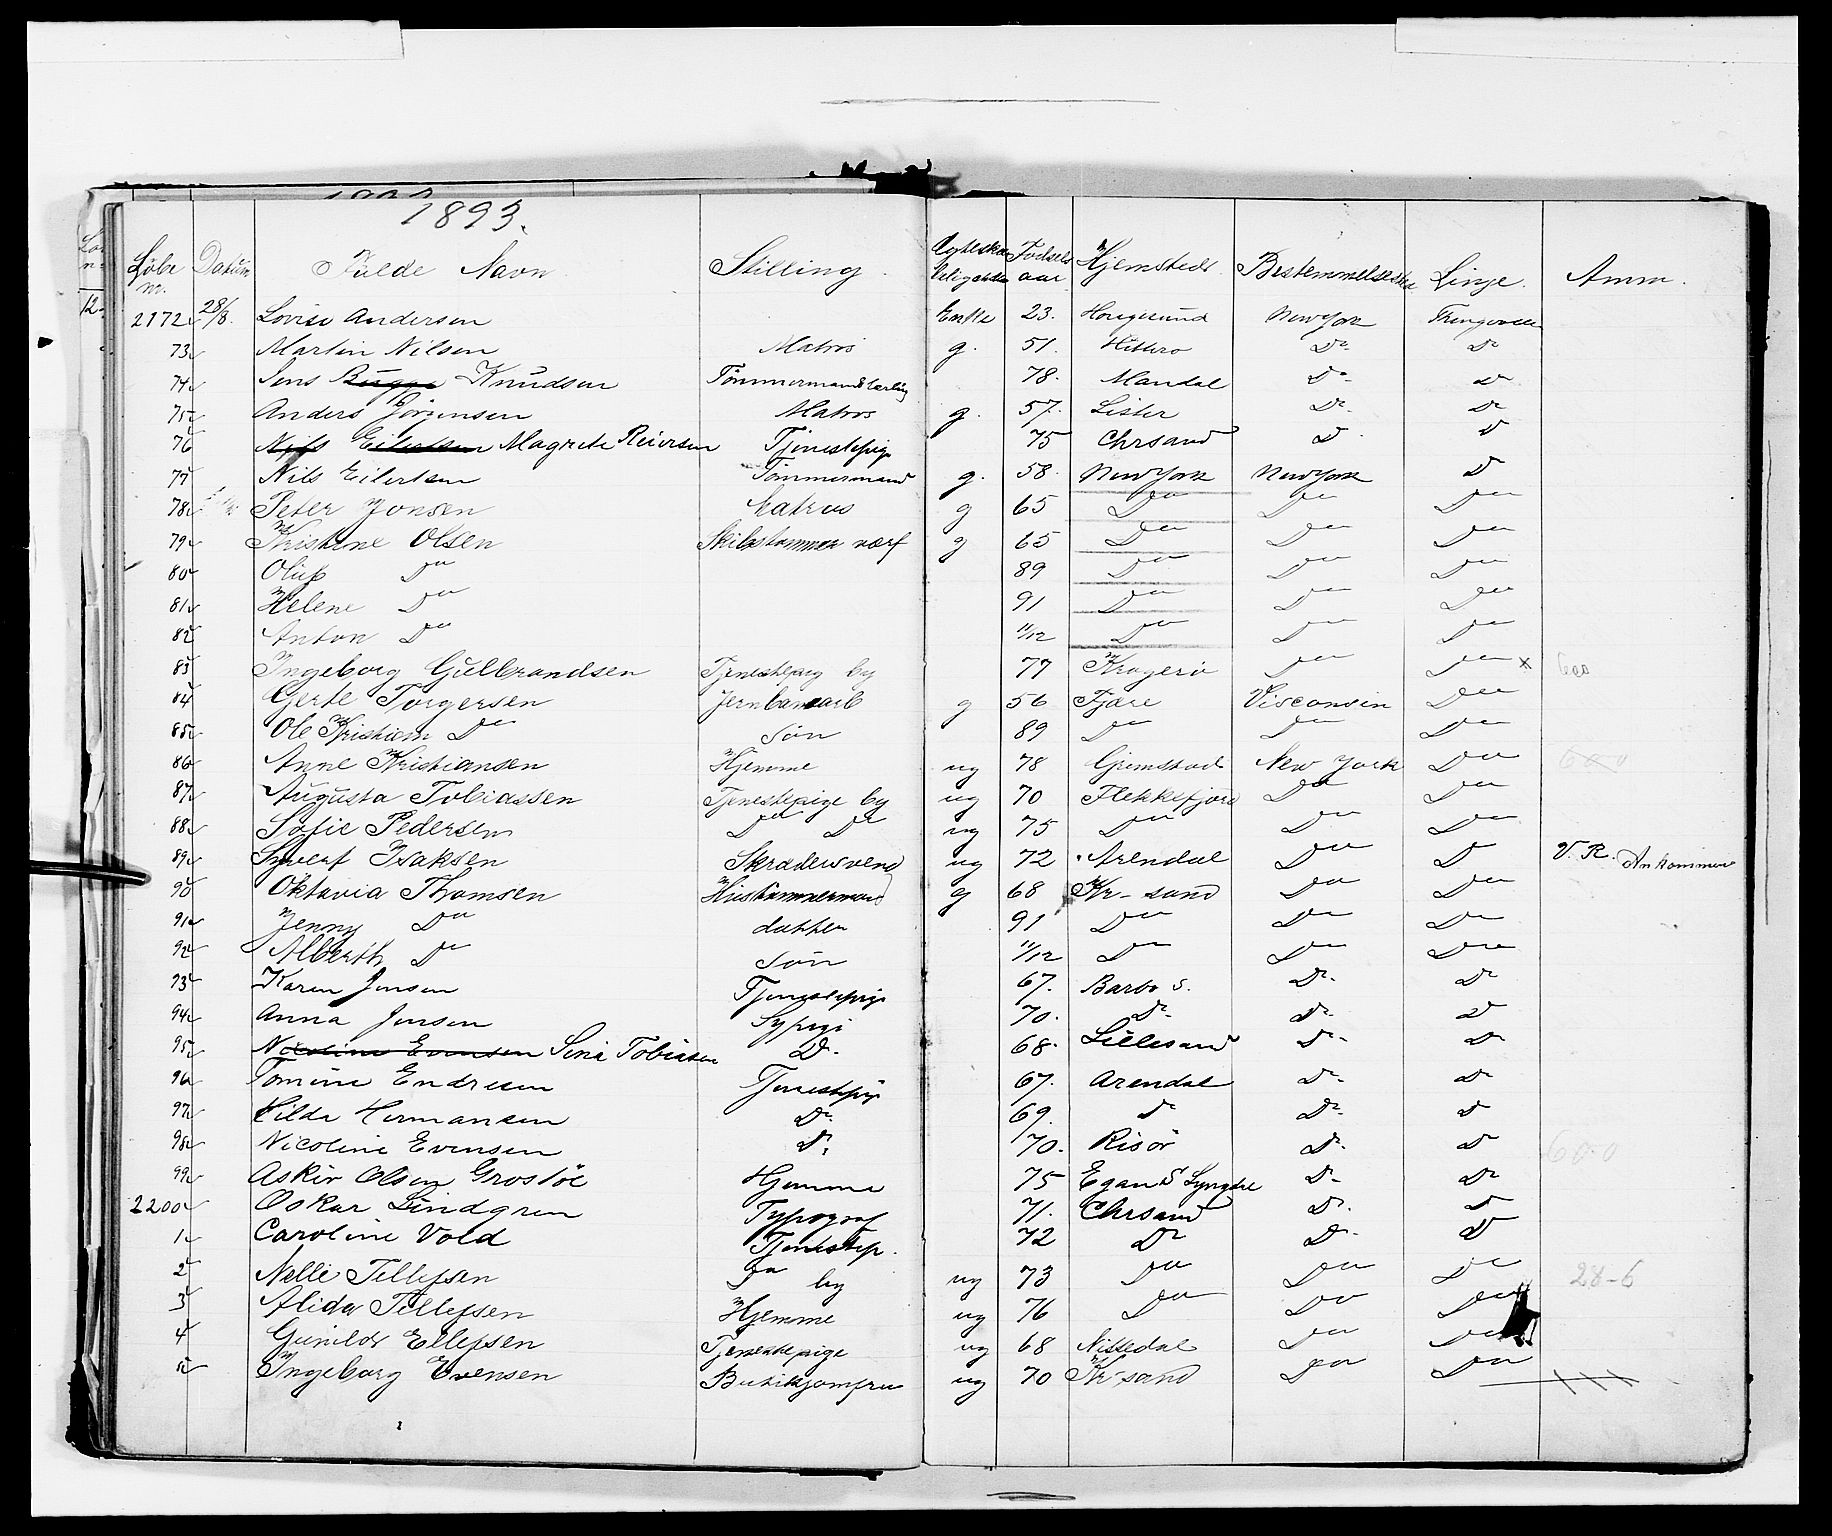 1893.
Løbe nr. Datum Fulde Navn Stilling Fødsels aar Hjemsted Bestemmelsessted Linje Anm.
2172 28/8 Lovise Andersen Enke 23. Hougesund New York Thingvalla
73 Martin Nilsen Matros g. 51. Hittero Do Do
74 Jens Bugge Knudsen Tømmermandslærling 78. Mandal Do Do
75 Anders Jörgensen Matros g. 57. Lister Do Do
76 Nils Eilertsen Magrete Reiersen Tjenestepige 75 Chrsand D D
77 Nils Eilertsen Tömmermand g. 58. New York New York D
78 Peter Jonsen Matros g 65 Do Do Do
79 Kristine Olsen Skibstømmer værf g 65 Do Do Do
80 Oluf Do 89 Do Do Do
81 Helene Do 91 Do Do Do
82 Anton Do 11/12 Do Do Do
83 Ingeborg Gulbrandsen Tjenestepig by 77 Kragerö Do Do x 600
84 Gerte Torgersen Jernbanearb g 56 Fjære Visconsin Do
85 Ole Kristian Do Sön 89 Do Do Do
86 Anne Kristiansen Hjemme ug 78 Grimstad New York Do 600
87 Augusta Tobiassen Tjenestepige by ug 70 Flekkefjord Do Do
88 Sofie Pedersen Do Do ug 75 Do Do Do
89 Isaksen Skrædersvend ug 72 Arendal Do D V. R. Ankommer
90 Oktavia Thomsen Hustömmermand g 68 Kr-sand Do Do
91 Jenny Do datter 91 Do Do Do
92 Alberth Do Sön 11/12 Do Do Do
93 Karen Jensen Tjenestepige 67. Barbo S. Do Do
94 Anna Jensen Sypige 70. Do Do D
95 Nicoline Evensen Sina Tobiasen D. 68. Lillesand Do D
96 Tomine Endresen Tjenestepige 67. Arendal Do D
97 Hilda Hermansen Do 69. D Do D
98 Nicoline Evensen D. 70. Risör Do D 600
99 Olsen Hjemme 75 Do Do
2200 Oskar Lindgren Typograf 71. Chrsand D. D
1 Caroline Vold Tjenestep. 72 Do Do D
2 Nelli Tellefsen Do by ug 73 Do Do Do 28-6
3 Alida Tellefsen Hjemme ug 76 Do Do Do
4 Gunild Ellefsen Tjenestepige ug 68 Nissedal Do Do
5 Ingeborg Evensen Butikjomfru ug 70 Kr-sand Do Do